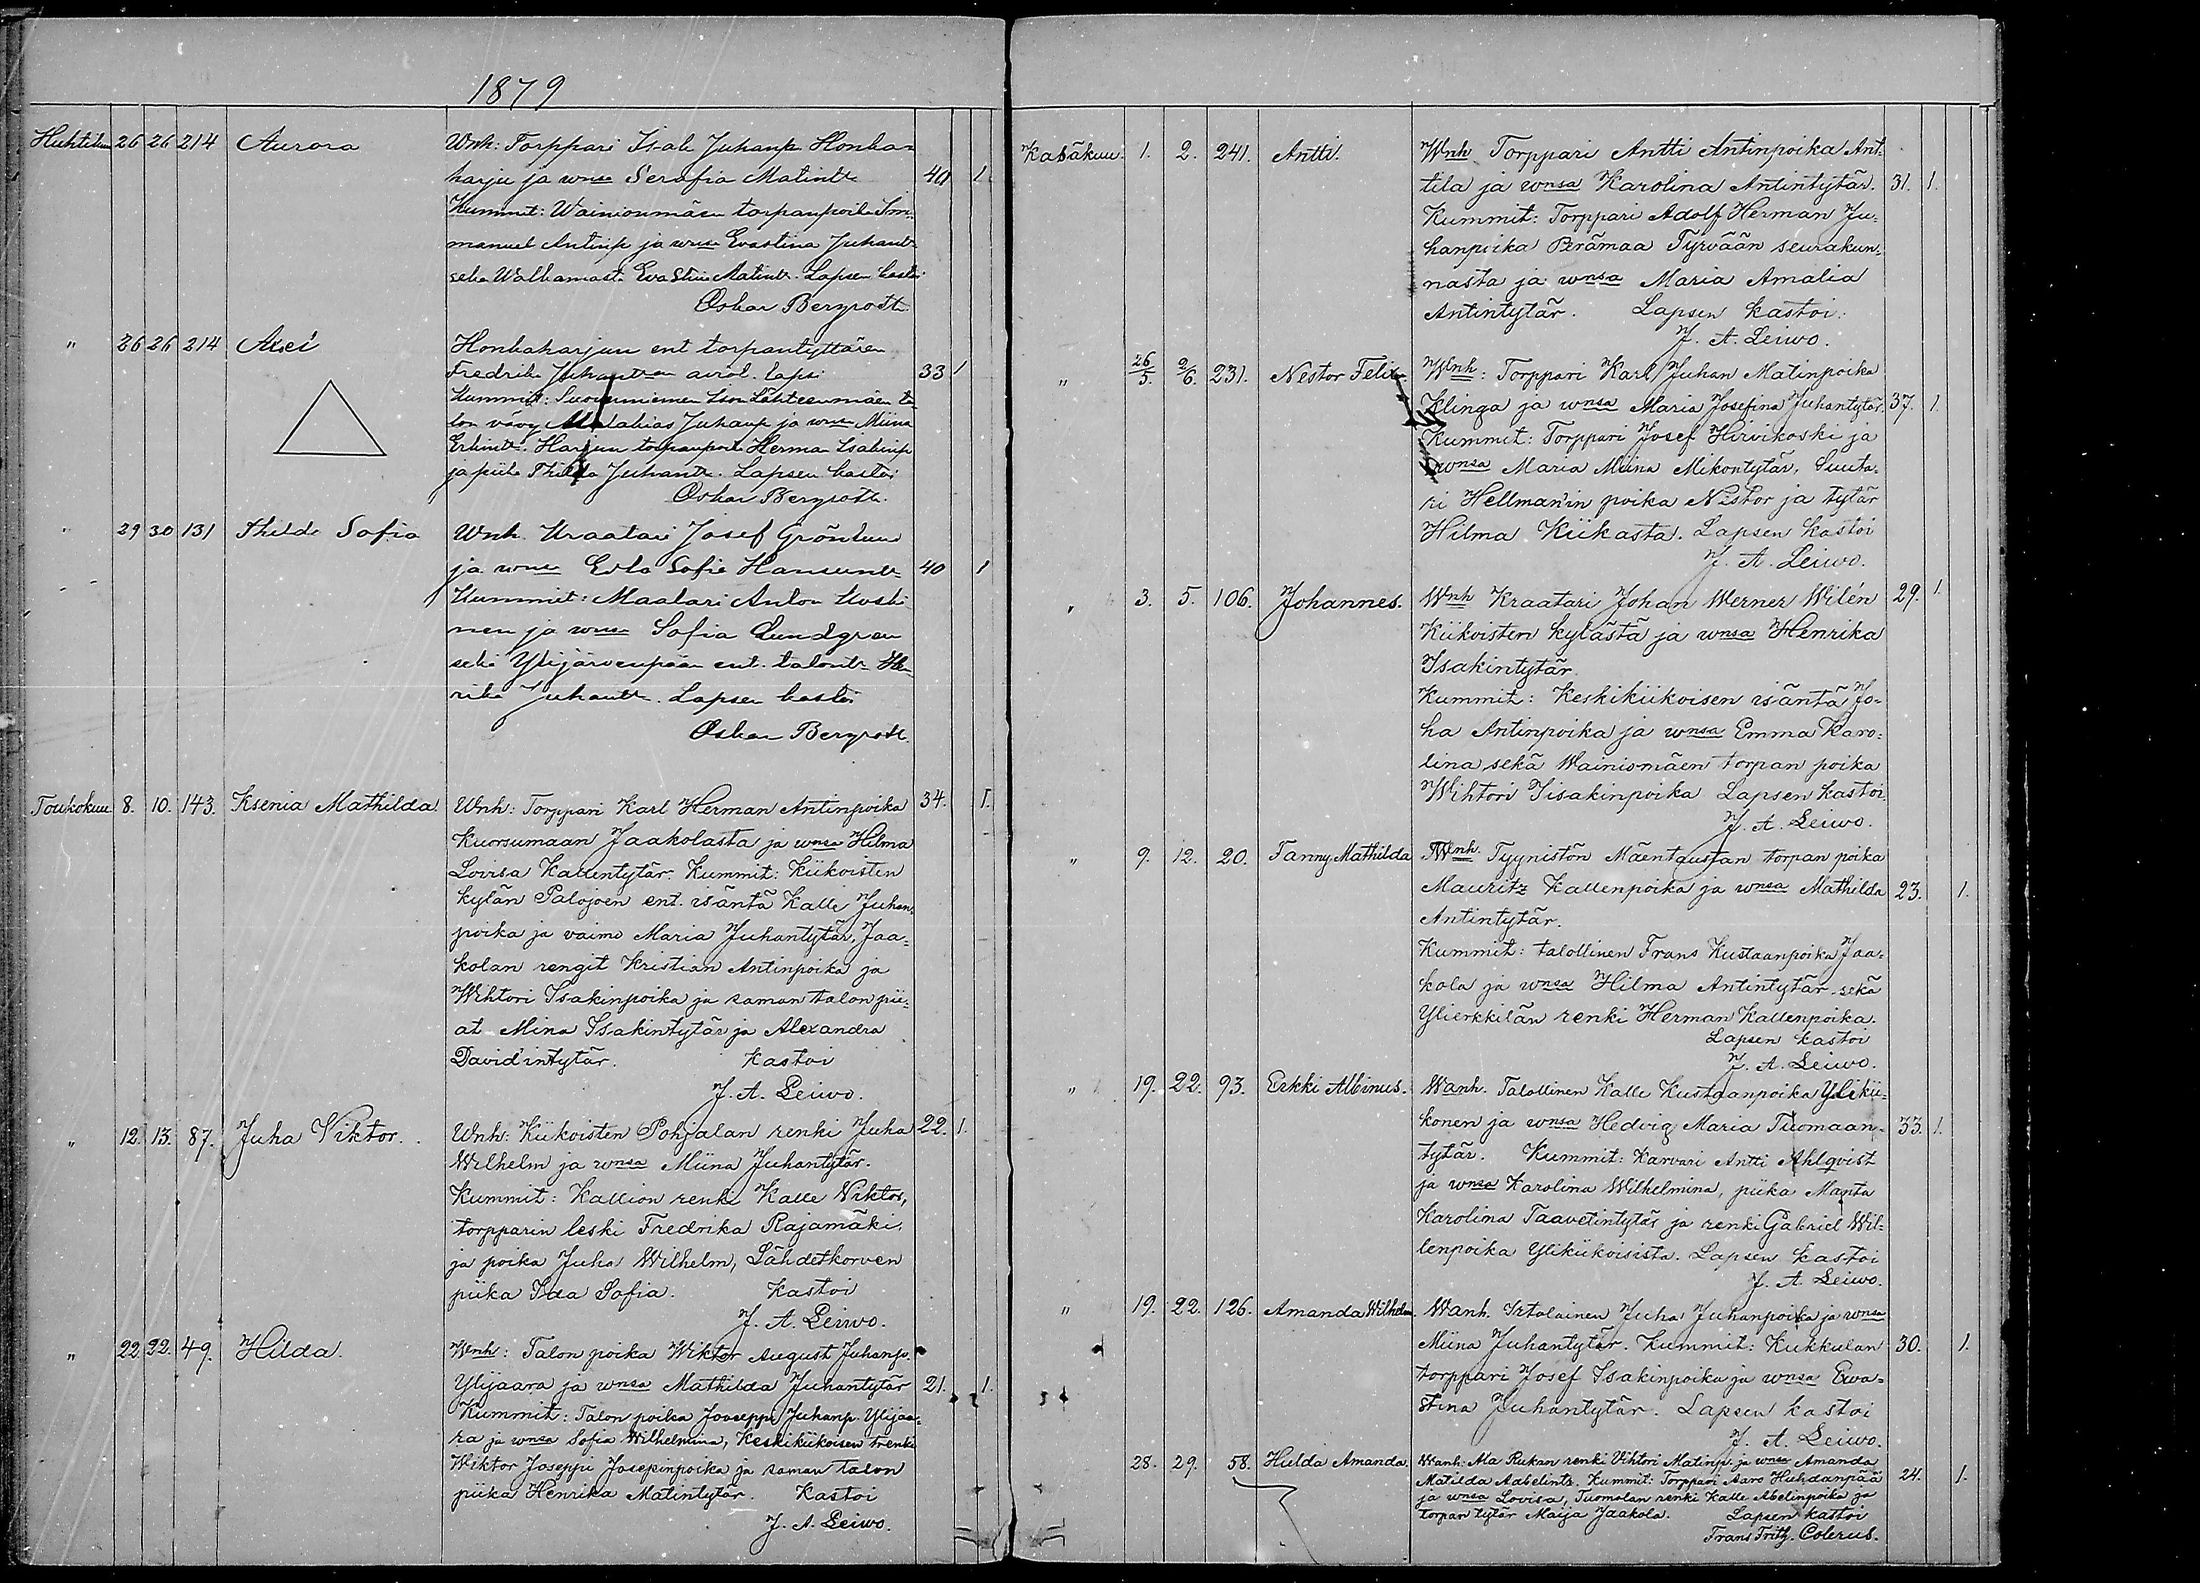 1879
Huhtikuu 26 26 214 Aurora Wnh: Torppari Isak Juhanp Honka-
harju ja wnsa Serafia Matintr 40 1
Kummit: Wainionmäen torpanpoika Im-
manuel Antinp ja wnsa Evastina Juhantr
sekä Walkamasta Eva Stiina Matintr. Lapsen kastoi
Oskar Bergroth
" 26 26 214 Honkaharjun ent torpantyttären
Fredrika Juhantren aviot. lapsi 33 1
Kummit: Suoniemen Ison Lähteenmäen ta-
lon vävy Malakias Juhanp ja wnsa Miina
Erkintr. Harjun torpanpoik Herma Isakinp
ja piika Thilda Juhantr. Lapsen kastoi
Oskar Bergroth.
" 29 30 131 Thilda Sofia Wnh. Kraatari Josef Grönlun
ja wnsa Evla Sofia Hanuntr 40 1
Kummit: Maalari Anton Koski
nen ja wnsa Sofia Lundgren
sekä Ylijärvenpään ent. talontr Hen
rika Juhantr. Lapsen kastoi
Oskar Bergroth.
Toukokuu 8. 10. 143. Ksenia Mathilda Wnh: Torppari Karl Herman Antinpoika 34. 1.
Kuorsumaan Jaakolasta ja wnsa Hilma
Lovisa Kallentytär. Kummit: Kiikoisten
kylän Palojoen ent. isäntä Kalle Juhan-
poika ja vaimo Maria Juhantytär, Jaa-
kolan rengit Kristian Antinpoika ja
Wihtori Isakinpoika ja saman talon pii-
at Mina Isakintytär ja Alexandra
David'intytär. Kastoi
J. A. Leiwo.
" 12. 13. 87. Juha Viktor. Wnh: Kiikoisten Pohjalan renki Juha 22. 1.
Wilhelm ja wnsa Miina Juhantytär.
Kummit: Kallion renki Kalle Viktor,
torpparin leski Fredrika Rajamäki,
ja poika Juha Wilhelm, Lähdetkorven
piika Idaa Sofia. Kastoi
J. A. Leiwo.
" 22. 22. 49. Hilda. Wnh: Talon poika Wiktor August Juhanp.
Ylijaara ja wnsa Mathilda Juhantytär 21. 1.
Kummit: Talon poika Jooseppi Juhanp. Ylijaa-
ra ja wnsa Sofia Wilhelmina, Keskikiikoisen trenki
Wiktor Joseppi Josepinpoika ja saman talon
piika Henrika Matintytär. Kastoi
J. A. Leiwo.
Kasäkuu. 1. 2. 241. Antti. Wnh Torppari Antti Antinpoika Ant-
tila ja wnsa Karolina Antintytär. 31. 1.
Kummit: Torppari Adolf Herman Ju-
hanpoika Perämaa Tyrvään seurakun-
nasta ja wnsa Maria Amalia
Antintytär. Lapsen kastoi:
J. A. Leiwo.
" 26/5. 2/6. 231. Nestor Felix. Wnh: Torppari Karl Juhan Matinpoika
Klinga ja wnsa Maria Josefina Juhantytär. 37. 1.
Kummit: Torppari Josef Hirvikoski ja
wnsa Maria Miina Mikontytär, Suuta-
ri Hellman'in poika Nestor ja tytär
Hilma Kiikasta. Lapsen kastoi
J. A. Leiwo.
" 3. 5. 106. Johannes. Wnh Kraatari Johan Werner Wilén 29. 1.
Kiikoisten kylästä ja wnsa Henrika
Isakintytär.
Kummit: Keskikiikoisen isäntä Jo-
ha Antinpoika ja wnsa Emma Karo-
lina, sekä Wainiomäen torpan poika
Wihtori Iisakinpoika Lapsen kastoi
J. A. Leiwo.
" 9. 12. 20. Fanny Mathilda Wnh. Tyynistön Mäentaustan torpan poika
Mauritz Kallenpoika ja wnsa Mathilda 23. 1.
Antintytär.
Kummit: talollinen Frans Kustaanpoika Jaa-
kola ja wnsa Hilma Antintytär sekä
Ylierkkilän renki Herman Kallenpoika.
Lapsen kastoi
J. A. Leiwo.
" 19. 22. 93. Erkki Albinus. Wanh. Talollinen Kalle Kustaanpoika Ylikii-
konen ja wnsa Hedvig Maria Tuomaan- 33. 1.
tytär. Kummit: Karvari Antti Ahlqvist
ja wnsa Karolina Wilhelmina, piika Manta
Karolina Taavetintytär ja renki Gabriel Wil-
lenpoika Ylikiikoisista. Lapsen kastoi
J. A. Leiwo.
" 19. 22. 126. Amanda Wilhelm. Wanh. Irtolainen Juha Juhanpoika ja wnsa
Miina Juhantytär. Kummit: Kukkulan 30. 1.
torppari Josef Isakinpoika ja wnsa Ewa-
Stina Juhantytär. Lapsen kastoi
J. A. Leiwo.
28. 29. 58. Hulda Amanda. Wanh: Ala Rukan renki Vihtori Matinp. ja wnsa Amanda
Matilda Aabelintr. Kummit: Torppari Aaro Huhdanpää 24. 1.
ja wnsa Lovisa, Tuomolan renki Kalle Abelinpoika ja
torpan tytär Maija Jaakola. Lapsen kastoi
Frans Frith. Colerus.